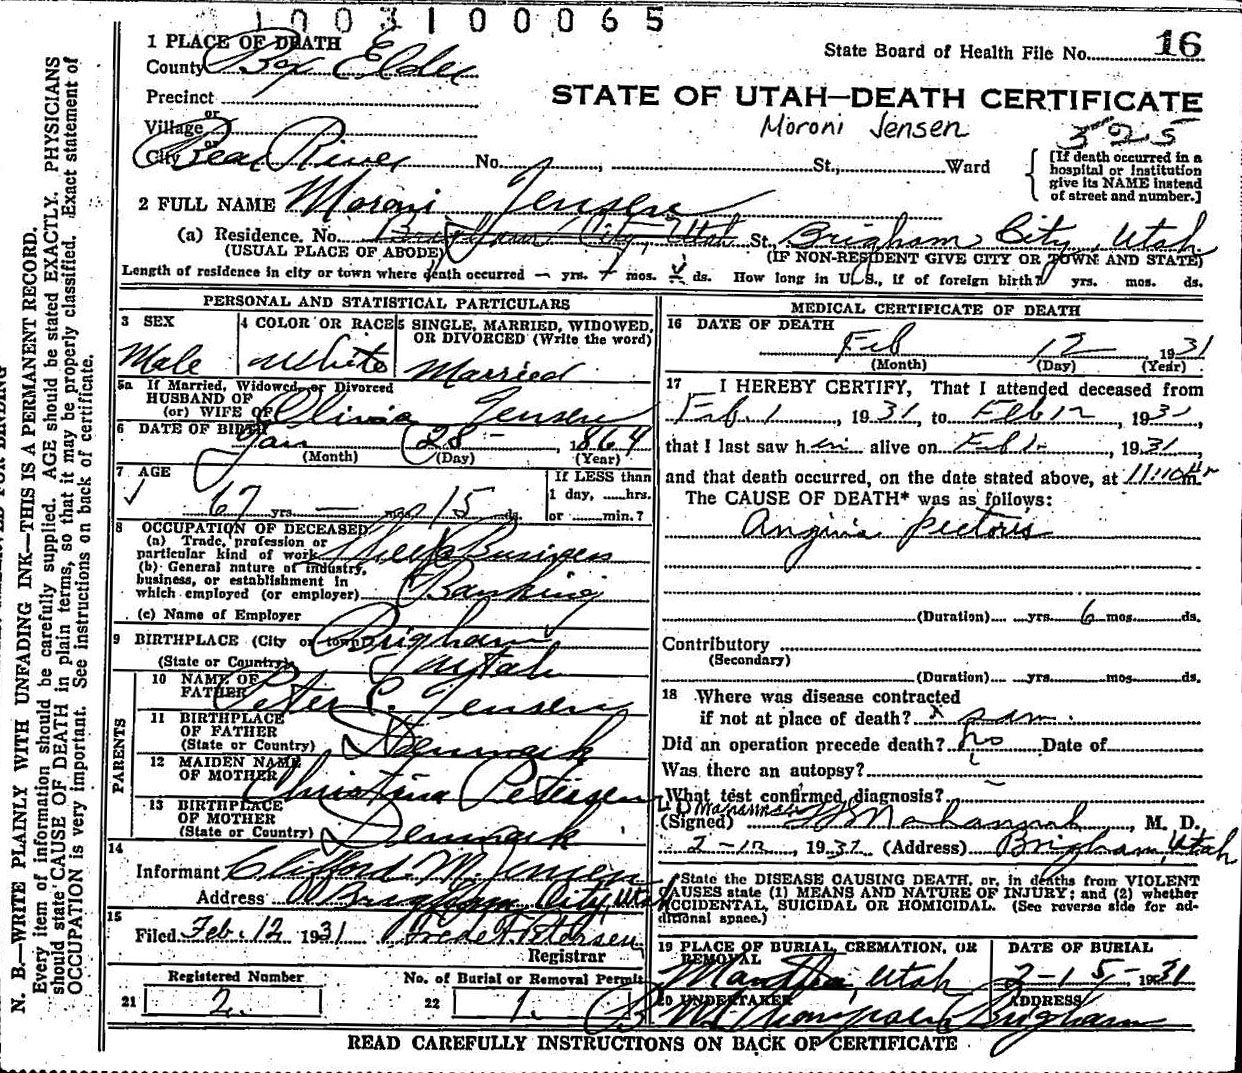 1003100065
1 PLACE OF DEATH
State Board of Health File No. 16
County Box Elder
Precinct
STATE OF UTAH—DEATH CERTIFICATE
or
Village
Moroni Jensen
325
or
City Bear River No. , St., Ward
[If death occurred in a
hospital or institution
give its NAME instead
of street and number.]
2 FULL NAME Moroni Jensen
(a) Residence. No. City, Utah St., Brigham City, Utah
(USUAL PLACE OF ABODE) (IF NON-RESIDENT GIVE CITY OR TOWN AND STATE)
Length of residence in city or town where death occurred — yrs. mos. ds. How long in U.S., if of foreign birth? yrs. mos. ds.
PERSONAL AND STATISTICAL PARTICULARS
3 SEX 4 COLOR OR RACE 5 SINGLE, MARRIED, WIDOWED,
OR DIVORCED (Write the word)
Male White Married
5a If Married, Widowed, or Divorced
HUSBAND OF
(or) WIFE OF Olivia Jensen
6 DATE OF BIRTH Jan 28 - 1864
(Month) (Day) (Year)
7 AGE If LESS than
1 day, ......hrs.
67 yrs. — mos. 15 ds. or ......min.?
8 OCCUPATION OF DECEASED
(a) Trade, profession or
particular kind of work Sheep Business
(b) General nature of industry,
business, or establishment in
which employed (or employer) Banking
(c) Name of Employer
9 BIRTHPLACE (City or town) Brigham
(State or Country) Utah
PARENTS
10 NAME OF
FATHER Peter C. Jensen
11 BIRTHPLACE
OF FATHER
(State or Country) Denmark
12 MAIDEN NAME
OF MOTHER Christina Petersen
13 BIRTHPLACE
OF MOTHER
(State or Country) Denmark
14
Informant Clifford M. Jensen
Address Brigham City, Utah
15
Filed Feb. 12 1931
Registrar
Registered Number No. of Burial or Removal Permit
21 2. 22 1.
MEDICAL CERTIFICATE OF DEATH
16 DATE OF DEATH
Feb 12 1931
(Month) (Day) (Year)
17 I HEREBY CERTIFY, That I attended deceased from
Feb. 1, 1931, to Feb 12, 1931,
that I last saw him alive on Feb 1, 1931,
and that death occurred, on the date stated above, at m.
The CAUSE OF DEATH* was as follows:
Angina pectoris
(Duration) yrs. 6 mos. ds.
Contributory
(Secondary)
(Duration) yrs. mos. ds.
18 Where was disease contracted
if not at place of death?
Did an operation precede death? no Date of
Was there an autopsy?
What test confirmed diagnosis?
(Signed) , M. D.
2-12, 1931 (Address) Brigham, Utah
State the DISEASE CAUSING DEATH, or, in deaths from VIOLENT
CAUSES state (1) MEANS AND NATURE OF INJURY; and (2) whether
ACCIDENTAL, SUICIDAL OR HOMICIDAL. (See reverse side for ad-
ditional space.)
19 PLACE OF BURIAL, CREMATION, OR
REMOVAL
DATE OF BURIAL
Mantua, Utah 2-15-1931
20 UNDERTAKER ADDRESS
Thompson Brigham
READ CAREFULLY INSTRUCTIONS ON BACK OF CERTIFICATE
N. B.—WRITE PLAINLY WITH UNFADING INK—THIS IS A PERMANENT RECORD.
Every item of information should be carefully supplied. AGE should be stated EXACTLY. PHYSICIANS
should state CAUSE OF DEATH in plain terms, so that it may be properly classified. Exact statement of
OCCUPATION is very important. See instructions on back of certificate.